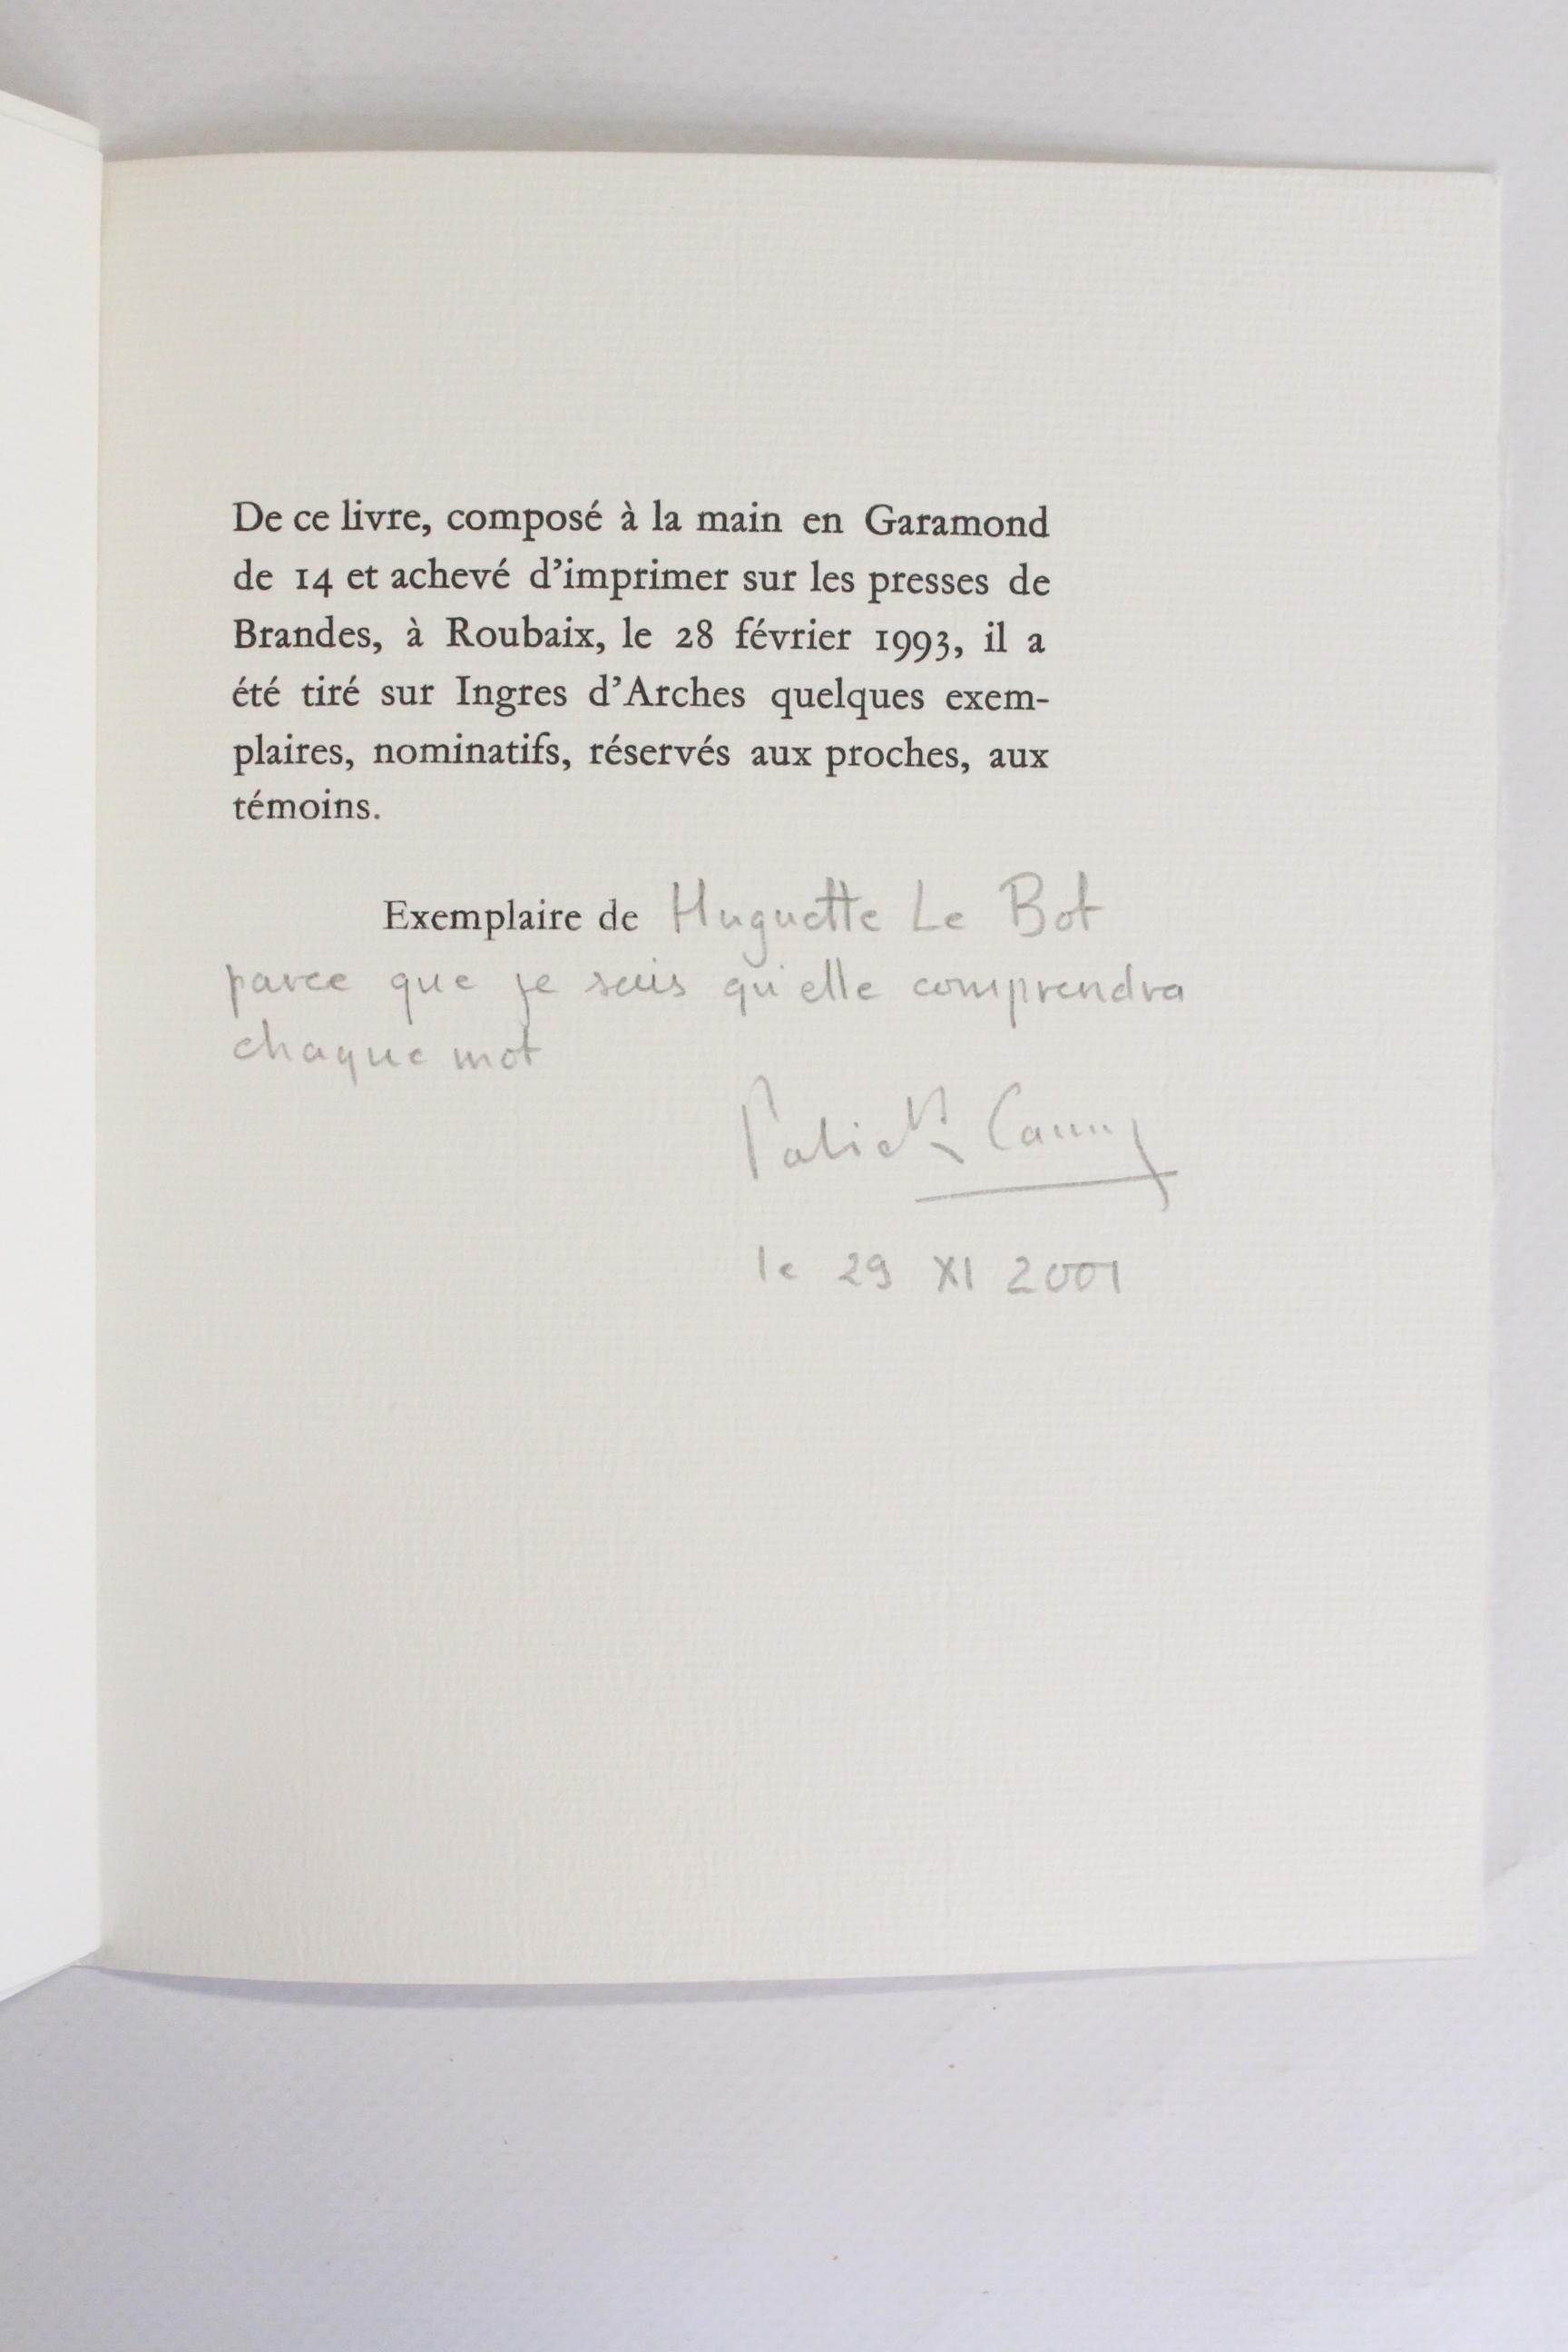 De ce livre, composé à la main en Garamond
de 14 et achevé d'imprimer sur les presses de
Brandes, à Roubaix, le 28 février 1993, il a
été tiré sur Ingres d'Arches quelques exem-
plaires, nominatifs, réservés aux proches, aux
témoins.
Exemplaire de Huguette Le Bot
parce que je sais qu'elle comprendra
chaque mot
Patrick
le 29 XI 2001